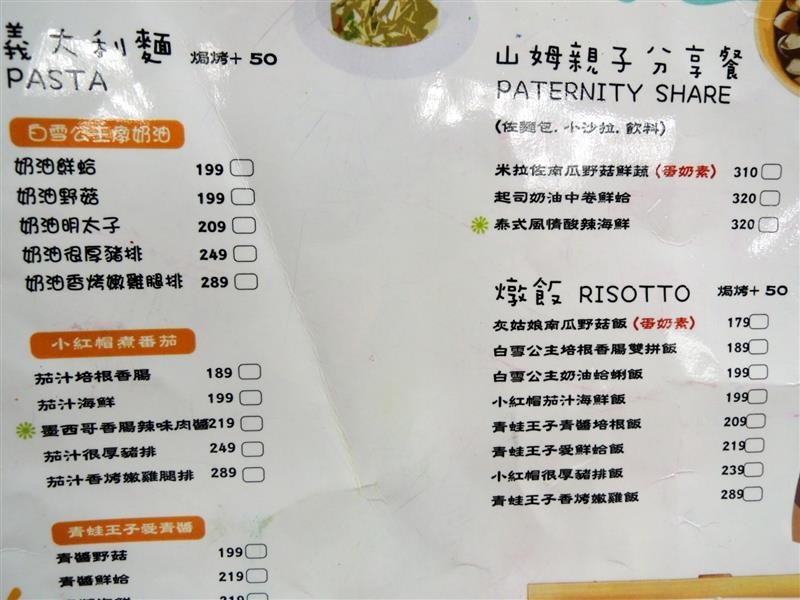 義大利麵 焗烤+50
PASTA
白雪公主燉奶油
奶油鮮蛤 199
奶油野菇 199
奶油明太子 209
奶油很厚豬排 249
奶油香烤嫩雞腿排 289
小紅帽煮番茄
茄汁培根香腸 189
茄汁海鮮 199
墨西哥香腸辣味肉醬 219
茄汁很厚豬排 249
茄汁香烤嫩雞腿排 289
青蛙王子愛青醬
青醬野菇 199
青醬鮮蛤 219
青醬海鮮 219
山姆親子分享餐
PATERNITY SHARE
(佐麵包.小沙拉.飲料)
米拉佐南瓜野菇鮮蔬(蛋奶素) 310
起司奶油中卷鮮蛤 320
泰式風情酸辣海鮮 320
燉飯 RISOTTO 焗烤+50
灰姑娘南瓜野菇飯(蛋奶素) 179
白雪公主培根香腸雙拼飯 189
白雪公主奶油蛤蜊飯 199
小紅帽茄汁海鮮飯 199
青蛙王子青醬培根飯 209
青蛙王子愛鮮蛤飯 219
小紅帽很厚豬排飯 239
青蛙王子香烤嫩雞飯 289